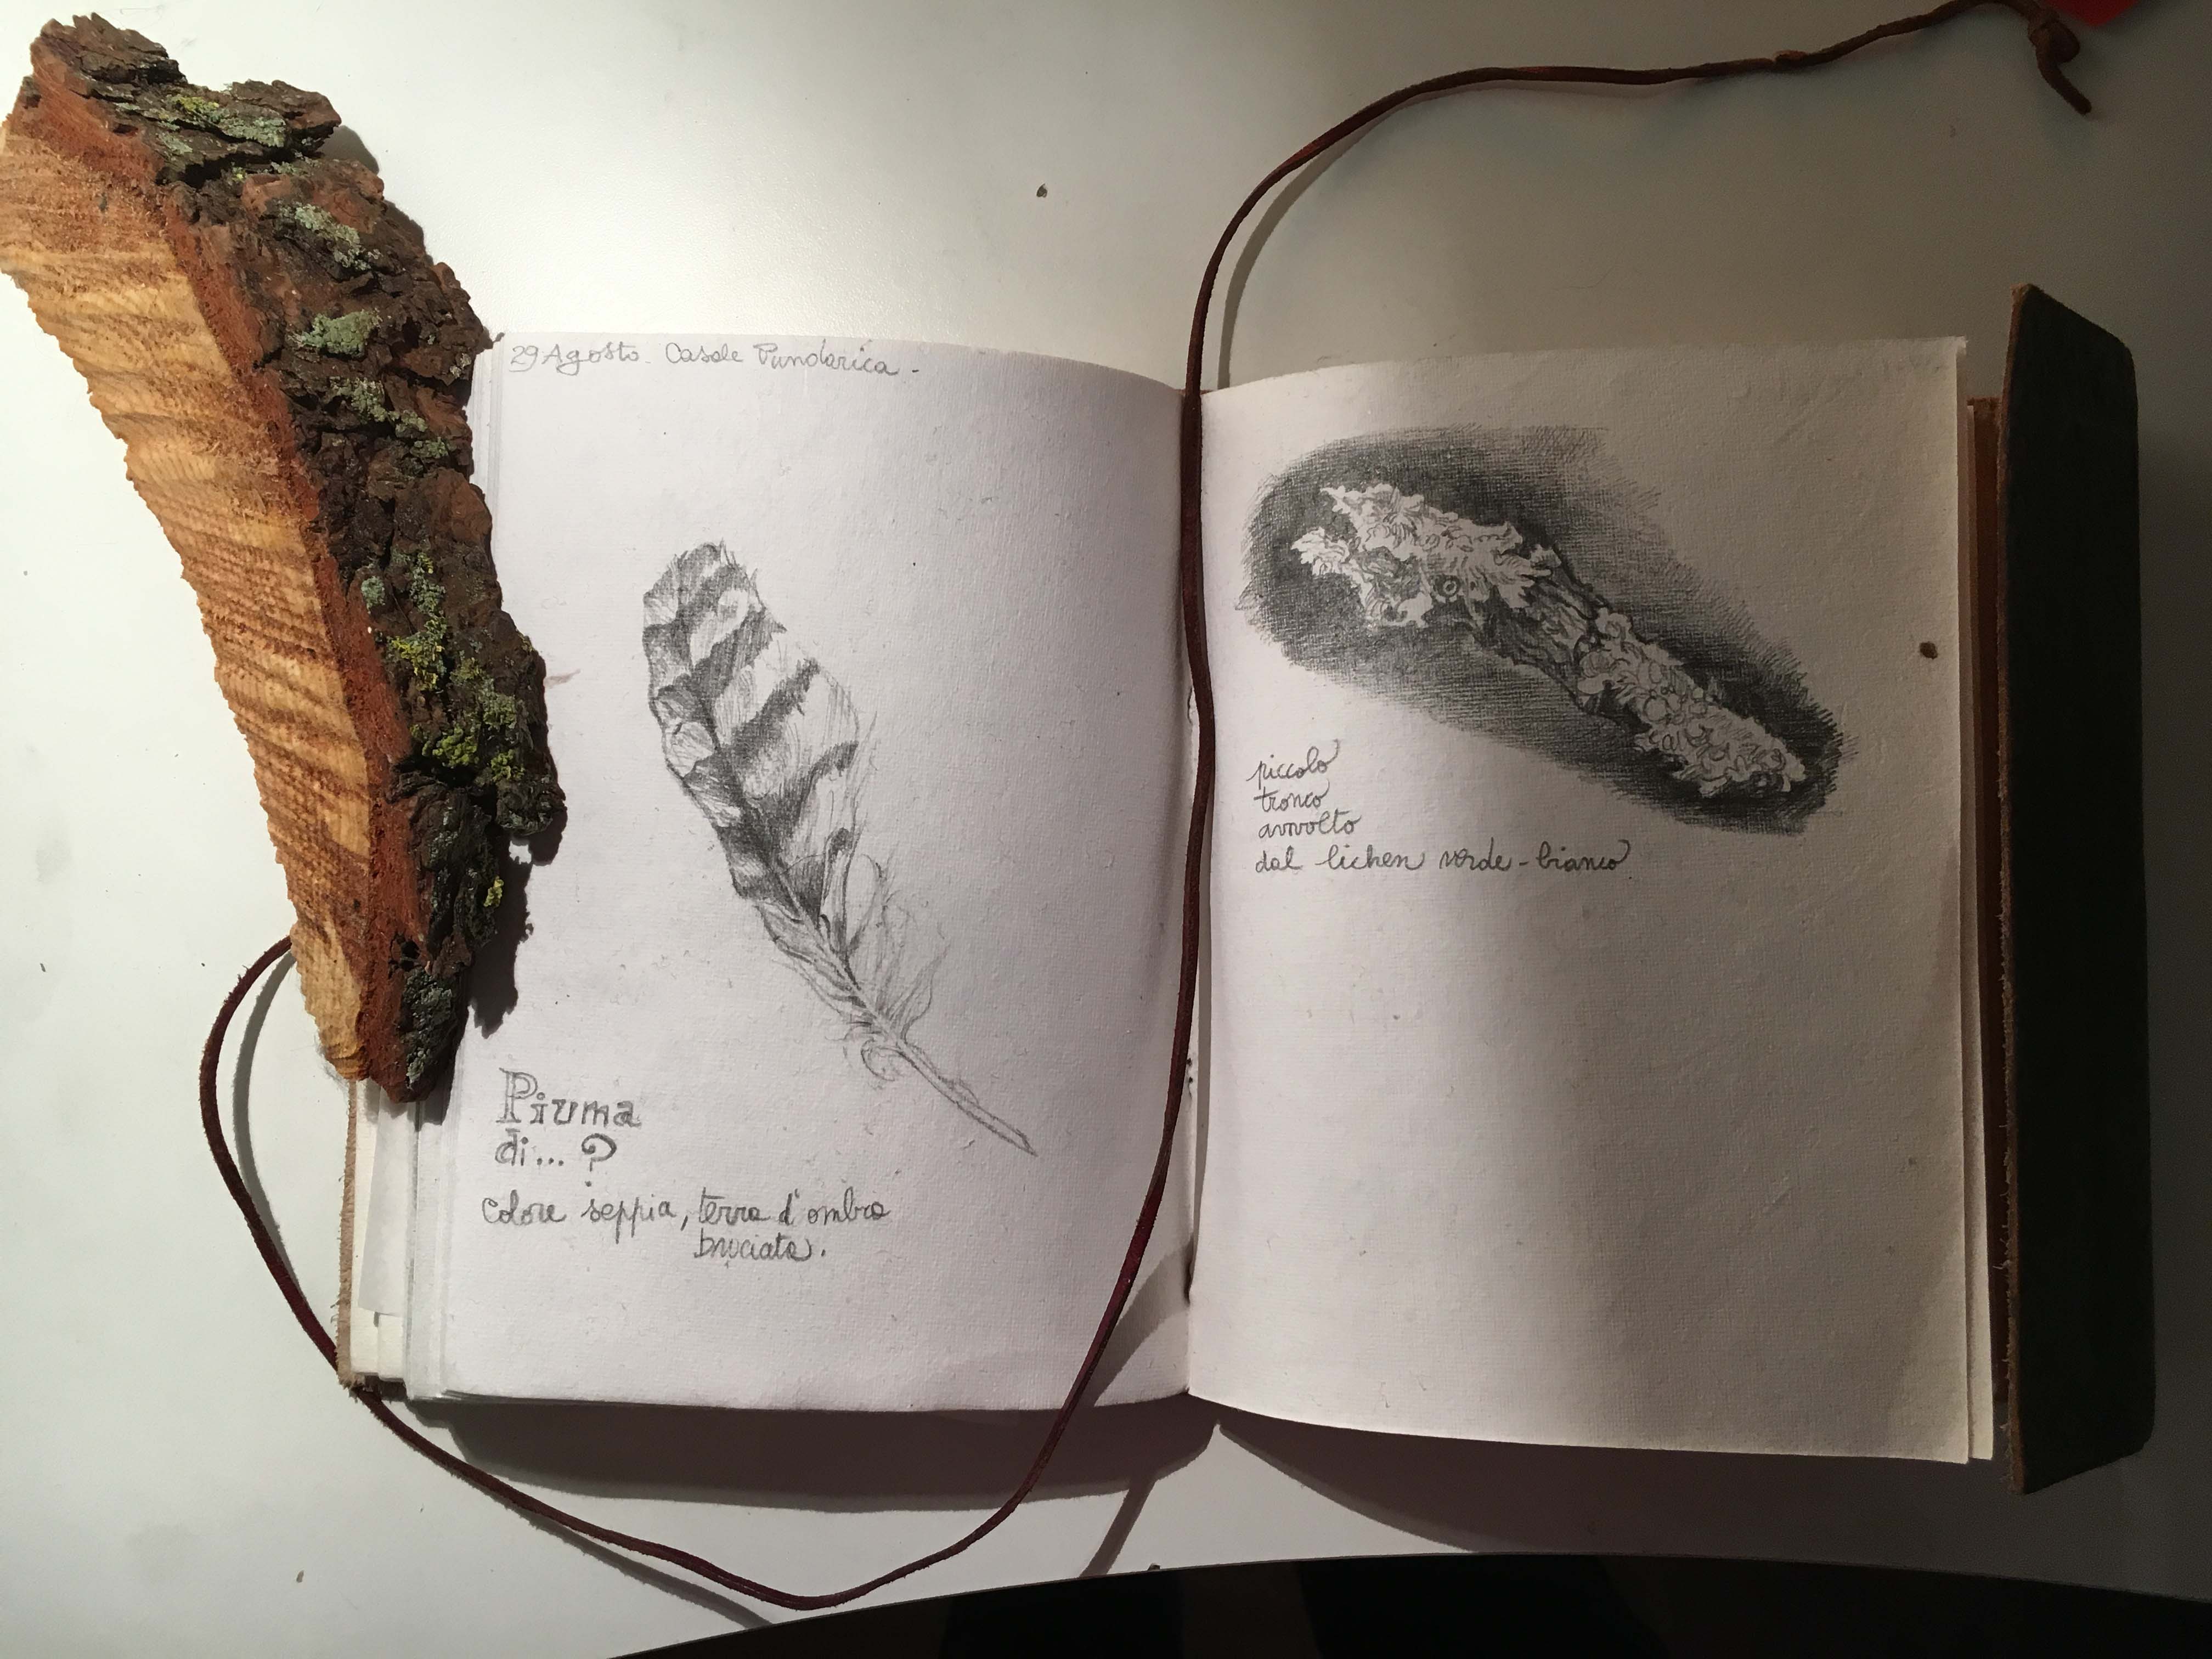 29 Agosto - Casale Pundarica -
Piuma
di... ?
colore seppia, terra d'ombra
bruciata.
piccolo
tronco
avvolto
dal lichen verde-bianco